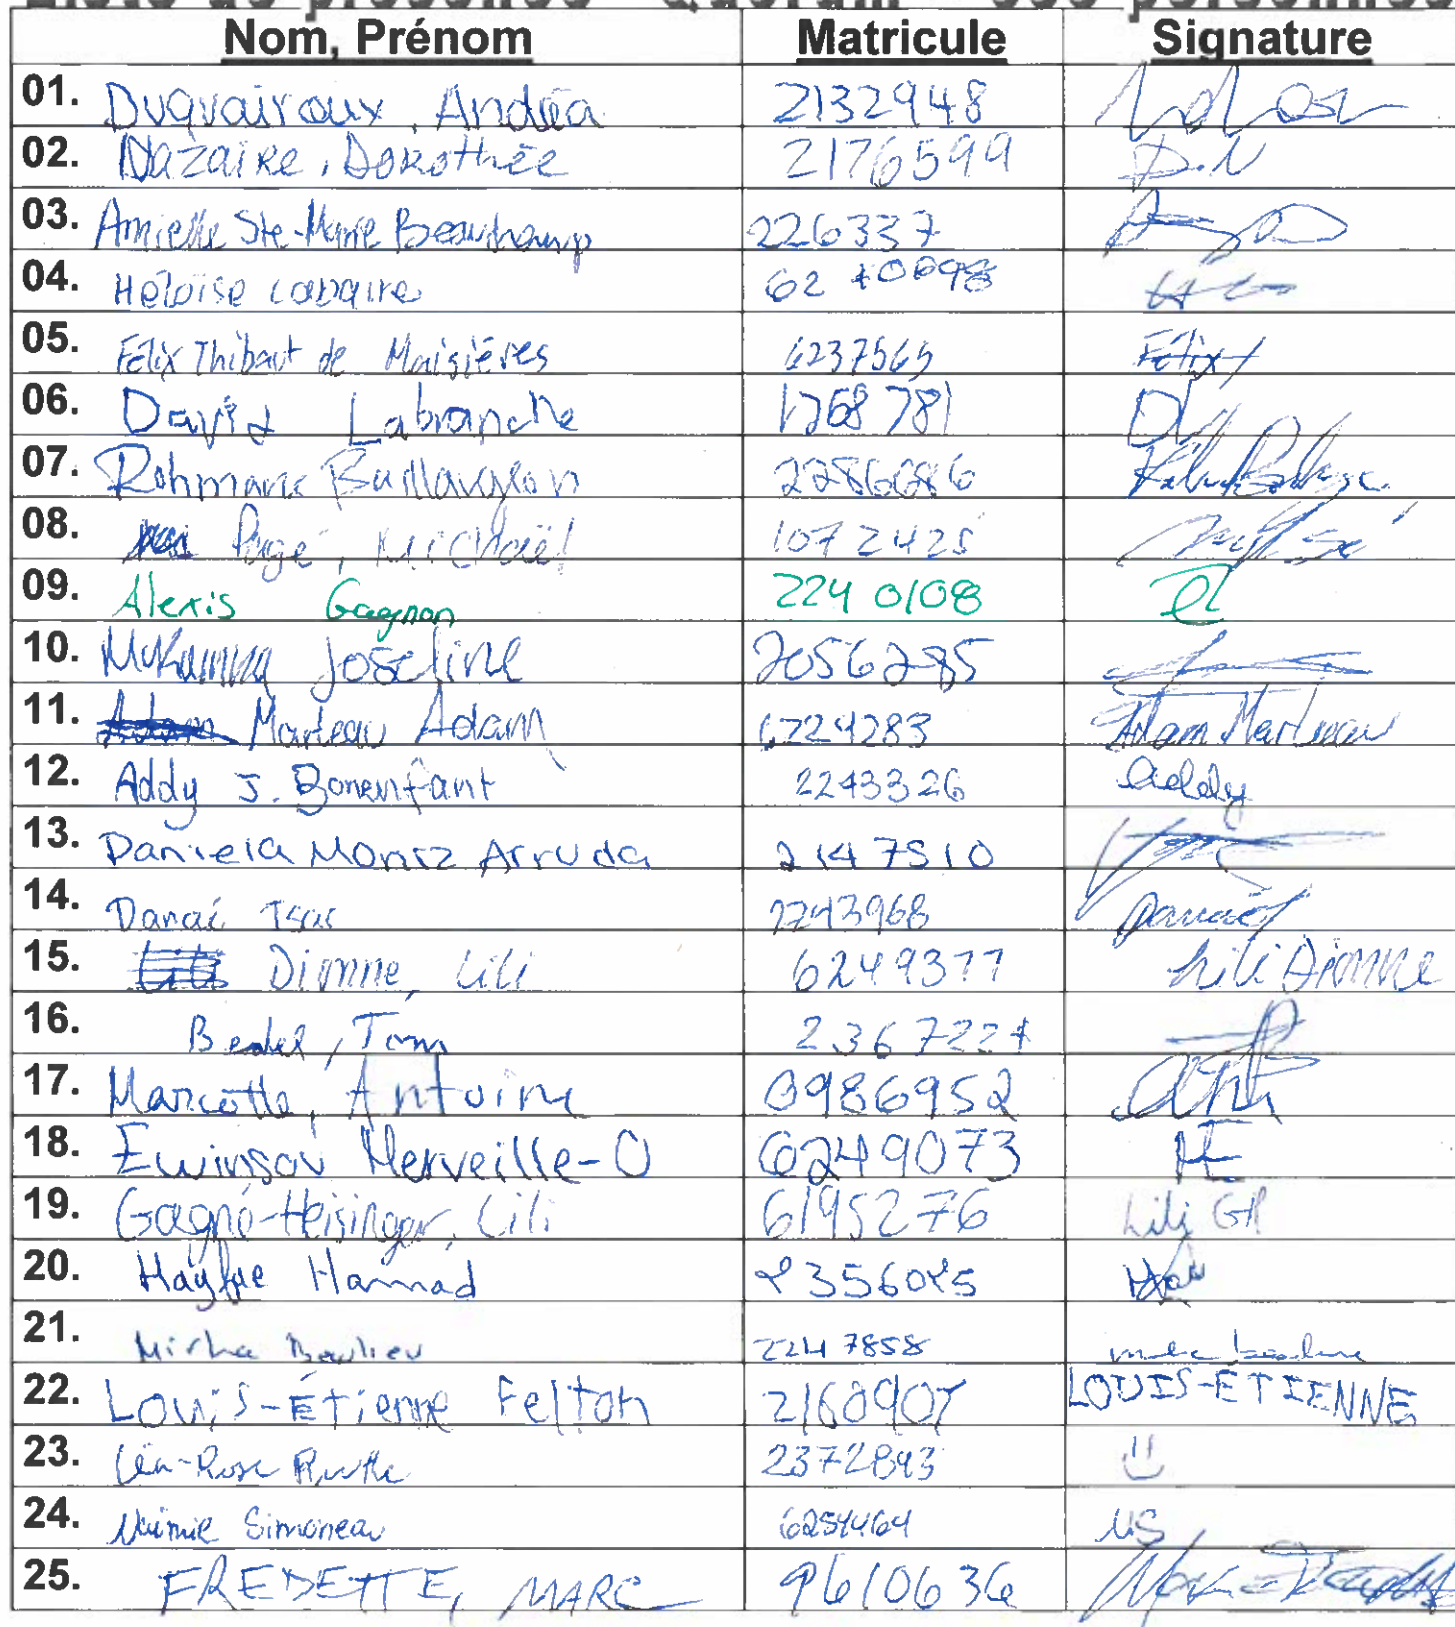 Liste de présence - Quorum - 
Nom, Prénom Matricule Signature
01. Duqvairoux, Andréa 2132948
02. Nazaire, Dorothée 2176599 D.N
03. Amielle Ste-Marie Beauchamp 226337
04. Héloïse
05. Félix Thibaut de Maisières 6237565 Félix
06. David Labranche 1768781 DL
07. 2286686
08. Pagé, Mickaël 1072425
09. Alexis Gagnon 2240108
10. Joseline 2056285
11. Marteau Adam 6724283 Adam Marteau
12. Addy J. Bonenfant 2243326 Addy
13. Daniela Moniz Arruda 2147510
14. Danaé Isac 2243968 Danaé
15. Dionne, Lili 6249377 Lili Dionne
16. Bedel, Tom 2367227
17. Marcotte, Antoine 0986952
18. Ewinsou Merveille-O 6249073 ME
19. Gagné-Heisinger, Lili 6195276 Lili GH
20. Hammad 2356025
21. Misha Beaulieu 2247858
22. Louis-Étienne Felton 2160907 LOUIS-ÉTIENNE
23. Léa-Rose 2372843
24. Noémie Simoneau 6254464 NS
25. FREDETTE, MARC 9610636